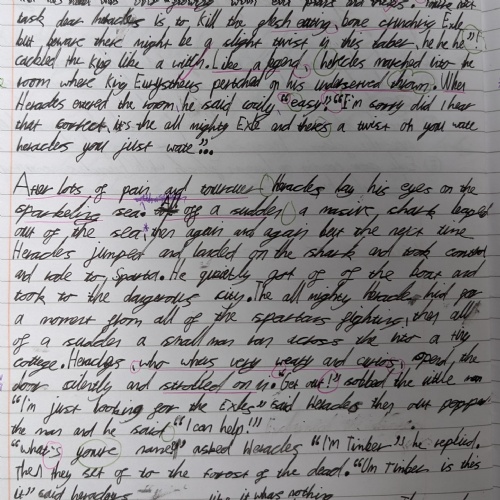 task dear heracles is to kill the flesh eating, bone crunching Exle
but beware there might be a slight twist in this laber, he he he"!
cackled the king like a witch. Like a legend, heracles marched into the
room where King Eurystheus pertched on his undeserved thrown. When
Heracles entered the room, he said coyly "easy!" "I'm sorry did I hear
that correct, it's the all mighty Exle and there's a twist oh you wate
heracles you just wate"...
After lots of pain and tourcuer Heracles lay his eyes on the
sparkeling sea. of a sudden, a massive, shark leaped
out of the sea, then again and again but the next time
Heracles jumped and landed on the shark and took control
and rode to Sparta. He quietly got of of the boat and
took to the dangerous city. The all mighey Heracles hid for
a moment from all of the spartans fighting, then all
of a sudden a small man ran across the into a tiny
cottege. Heracles, who whers very weary and curios, opend the
door silently and strolled on in. "Get out!" sobbed the little man
"I'm just looking for the Exles" said Heracles then out popped
the man and he said "I can help!"
"what's youre name?" asked Heracles "I'm Timber" he replied.
Then they set of to the forest of the dead. "Um Timber is this
it" said heracles it was nothing